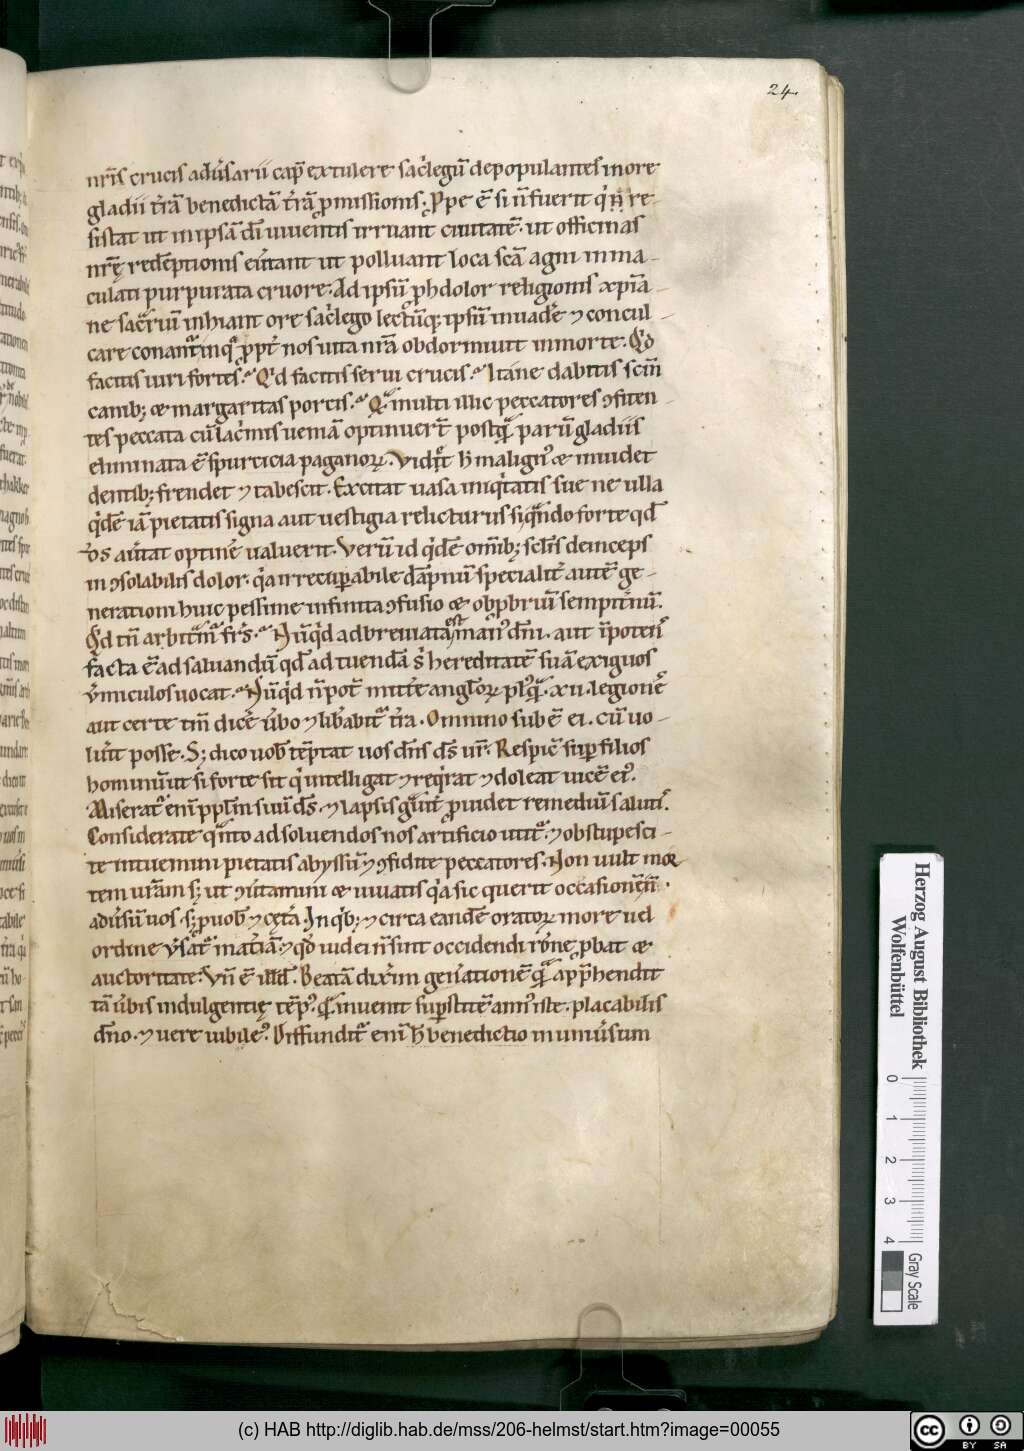 24.
nr̄is crucis adũsarii cap̄ extulere sac̓legū depopulantes in ore
gladii t̓rā benedictā t̓rā p̱missionis. Ppe ē si n̄ fuerit q̓ n̄ re-
sistat ut in ipsā dī uiuentis irruant ciuitatē. ut officinas
nr̄ę redēptionis eu̓tant ut polluant loca sc̄a agni inma-
culati purpurata cruore. Ad ipsū ꝓh dolor religionis xp̄ia-
ne sac̓riū inhiant ore sac̓lego lectūq; ipsū inuad̓e ⁊ concul-
care conant᷑ in quo ꝓpt̓ nos uita nr̄a obdormiuit in morte. Qͥd
facitis uiri fortes. Qͥd facitis serui crucis. Itane dabitis sc̄m̄
canib; & margaritas porcis. Qͣ multi illic peccatores ꝯfiten-
tes peccata cū lac̓mis ueniā optinuer̄t postqͣ̄ parū gladiis
eliminata ē spurcicia paganoꝝ. Vidͥt h̄ malignꝰ & inuidet
dentib; frendet ⁊ tabescit. Excitat uasa iniqͥtatis sue ne ulla
qͥdē iā pietatis signa aut uestigia relicturus siqͣndo forte qd̄
d̄s au̓tat optin̓e ualuerit. Verū id qͥdē om̄ib; scl̄is deinceps
inꝯsolabilis dolor. qͥa irrecuꝑabile dāpnū specialit̓ autē ge-
nerationi huic pessime infinita ꝯfusio & obꝓbriū sempit̓nū.
Qͥd tn̄ arbitͣm᷑ fr̄s. Nūqͥd adbreuiata est manꝰ dn̄i. aut īpotens
facta ē ad saluandū qd̄ ad tuendā s᷑ hereditatē suā exiguos
u̓miculos uocat. Nūqͥd n̄ pot̓ mitt̓e angl̄oꝝ plꝰqͣ̄ .xii. legiones
aut certe tm̄ dic̓e u̓bo ⁊ lib̓abit᷑ t̓ra. Omnino subē ei. cū uo-
lu̓it posse. S; dico uob̄ tēptat uos dn̄s d̄s ur̄. Respic̓ suꝑ filios
hominū ut si forte sit qͥ intelligat ⁊ reqͥrat ⁊ doleat uicē eiꝰ.
Miserat᷑ enī ppl̄m suū d̄s. ⁊ lapsis gͣuit̓ ꝓuidet remediū salutiꝰ.
Considerate qͣnto ad soluendos nos artificio utit᷑. ⁊ obstupesci-
te intuemini pietatis abyssū ⁊ ꝯfidite peccatores. Non uult moꝝ
tem urām s; ut ꝯu̓tamini & uiuatis qͥa sic querit occasionē n̄
adu̓sū uos. s; ꝓ uob̄ ⁊ cęt̓a. Inqͥb; ⁊ circa eandē oratoꝝ more uel
ordine u̓sat᷑ mat̓iā ⁊ qd̄ iudei n̄ sint occidendi rōne ꝓbat &
auctoritate. Vn̄ ē illud. Beatā dixͥim gen̓ationē qͣ̄ app̄hendit
tā u̓bis indulgentię tēpꝰ. qͣ̄ inuenit suꝑstitē annꝰ iste. placabilis
dn̄o. ⁊ uere iubileꝰ. Diffundit᷑ enī h̄ benedictio in uniu̓sum
Herzog August Bibliothek
Wolfenbüttel
0
1
2
3
4
Gray Scale
(c) HAB http://diglib.hab.de/mss/206-helmst/start.htm?image=00055
cc BY SA